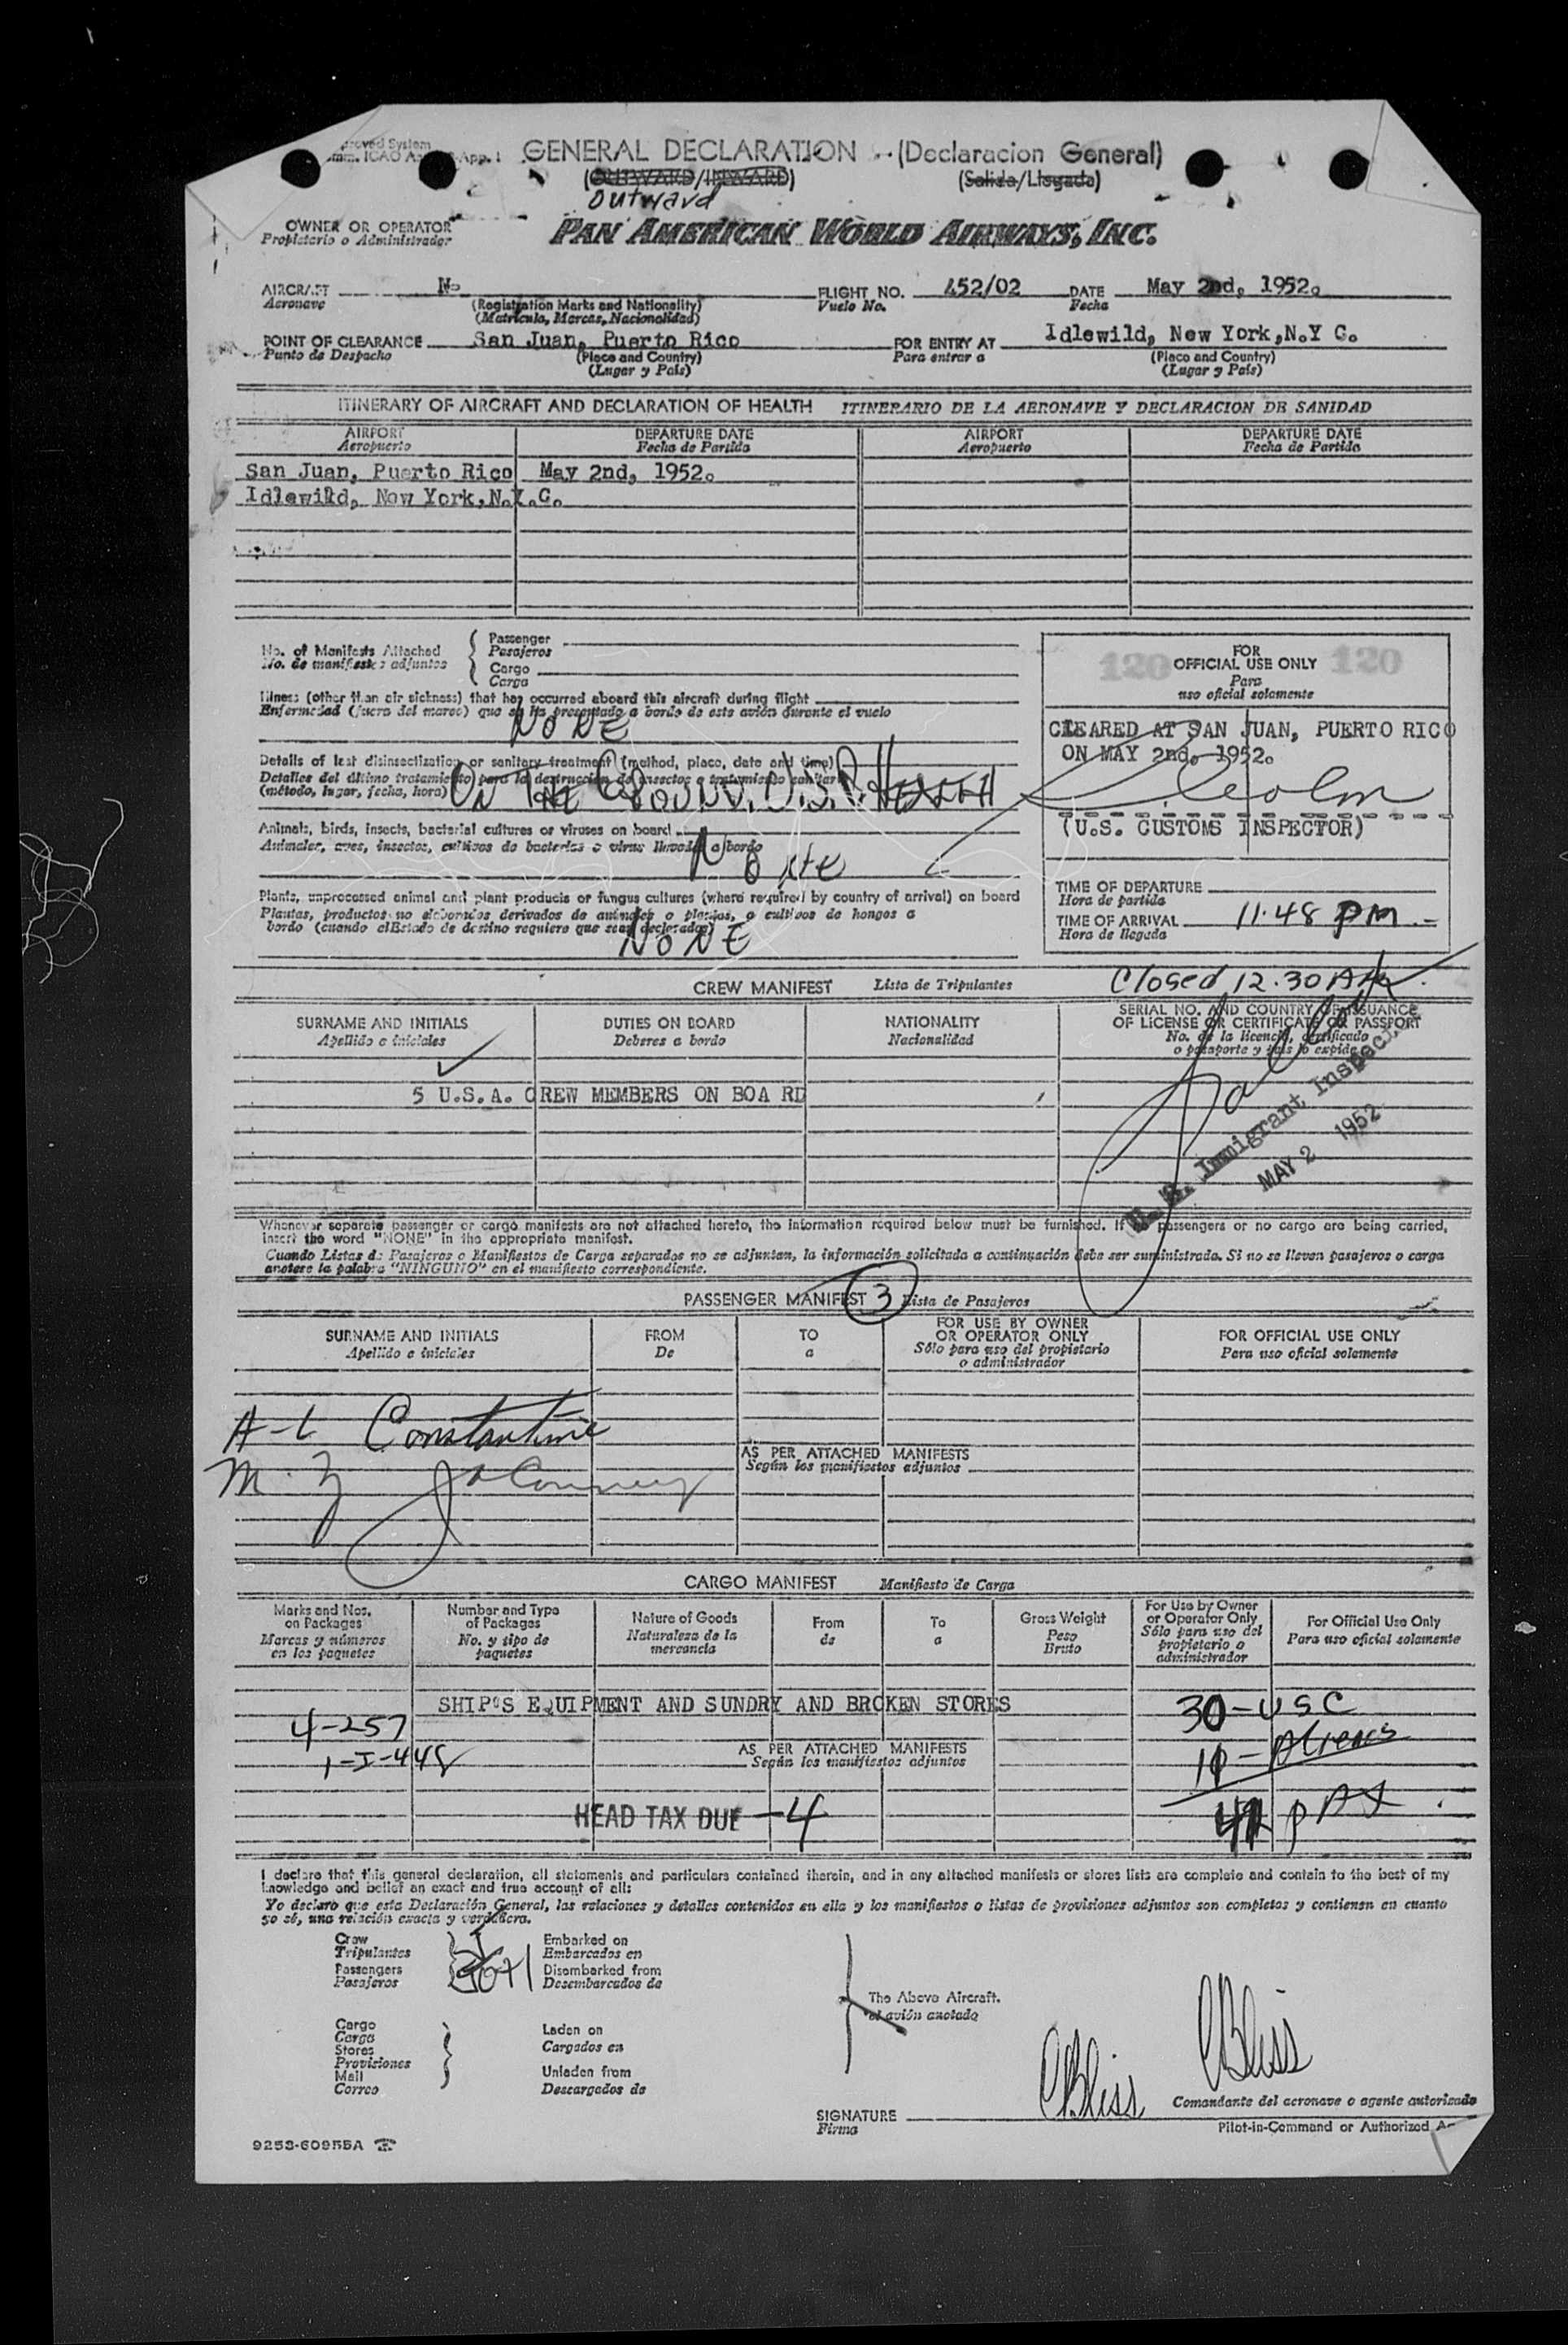 GENERAL DECLARATION (Declaracion General)
(OUTWARD/INWARD) (Salida/Llegada)
Outward
OWNER OR OPERATOR
Propietario o Administrador
PAN AMERICAN WORLD AIRWAYS, INC.
AIRCRAFT N- FLIGHT NO. 452/02 DATE May 2nd, 1952.
Aeronave (Registration Marks and Nationality) Vuelo No. Fecha
(Matrícula, Marcas, Nacionalidad)
POINT OF CLEARANCE San Juan, Puerto Rico FOR ENTRY AT Idlewild, New York,N.Y C.
Punto de Despacho (Place and Country) Para entrar a (Place and Country)
(Lugar y País) (Lugar y País)
ITINERARY OF AIRCRAFT AND DECLARATION OF HEALTH ITINERARIO DE LA AERONAVE Y DECLARACION DE SANIDAD
AIRPORT DEPARTURE DATE AIRPORT DEPARTURE DATE
Aeropuerto Fecha de Partida Aeropuerto Fecha de Partida
San Juan, Puerto Rico May 2nd, 1952.
Idlewild, New York,N.Y.C.
No. of Manifests Attached
No. de manifiestos adjuntos
Passenger
Pasajeros
Cargo
Carga
Illness (other than air sickness) that has occurred aboard this aircraft during flight
Enfermedad (fuera del mareo) que se ha presentado a bordo de este avión durante el vuelo
NONE
Details of last disinsectization or sanitary treatment (method, place, date and time)
Detalles del último tratamiento para la destrucción de insectos o tratamiento sanitario
(método, lugar, fecha, hora)
ON THE GROUND. U.S.P. HEALTH
Animals, birds, insects, bacterial cultures or viruses on board
Animales, aves, insectos, cultivos de bacterias o virus llevados a bordo
NONE
Plants, unprocessed animal and plant products or fungus cultures (where required by country of arrival) on board
Plantas, productos no elaborados derivados de animales o plantas, o cultivos de hongos a
bordo (cuando el Estado de destino requiere que sean declarados)
NONE
120 FOR 120
OFFICIAL USE ONLY
Para
uso oficial solamente
CLEARED AT SAN JUAN, PUERTO RICO
ON MAY 2nd. 1952.
(U.S. CUSTOMS INSPECTOR)
TIME OF DEPARTURE
Hora de partida
TIME OF ARRIVAL 11.48 PM.
Hora de llegada
Closed 12.30 AM.
CREW MANIFEST Lista de Tripulantes
SURNAME AND INITIALS DUTIES ON BOARD NATIONALITY SERIAL NO. AND COUNTRY OF ISSUANCE
Apellido e iniciales Deberes a bordo Nacionalidad OF LICENSE OR CERTIFICATE OR PASSPORT
No. de la licencia, certificado
o pasaporte y país lo expide
5 U.S.A. CREW MEMBERS ON BOA RD
U. S. Immigrant Inspector
MAY 2 1952
Whenever separate passenger or cargo manifests are not attached hereto, the information required below must be furnished. If no passengers or no cargo are being carried,
insert the word "NONE" in the appropriate manifest.
Cuando Listas de Pasajeros o Manifiestos de Carga separados no se adjuntan, la información solicitada a continuación debe ser suministrada. Si no se lleven pasajeros o carga
anotese la palabra "NINGUNO" en el manifiesto correspondiente.
PASSENGER MANIFEST 3 Lista de Pasajeros
SURNAME AND INITIALS FROM TO FOR USE BY OWNER FOR OFFICIAL USE ONLY
Apellido e iniciales De a OR OPERATOR ONLY Para uso oficial solamente
Sólo para uso del propietario
o administrador
A-L Constantine
AS PER ATTACHED MANIFESTS
Según los manifiestos adjuntos
CARGO MANIFEST Manifiesto de Carga
Marks and Nos. on Packages Number and Type of Packages Nature of Goods From To Gross Weight For Use by Owner or Operator Only For Official Use Only
Marcas y números en los paquetes No. y tipo de paquetes Naturaleza de la mercancía de a Peso Bruto Sólo para uso del propietario o administrador Para uso oficial solamente
SHIP'S EQUIPMENT AND SUNDRY AND BROKEN STORES 30-USC
4-257
AS PER ATTACHED MANIFESTS Aliens
1-I-448 Según los manifiestos adjuntos
HEAD TAX DUE -4 PAX
I declare that this general declaration, all statements and particulars contained therein, and in any attached manifests or stores lists are complete and contain to the best of my
knowledge and belief an exact and true account of all:
Yo declaro que esta Declaración General, las relaciones y detalles contenidos en ella y los manifiestos o listas de provisiones adjuntos son completos y contienen en cuanto
yo sé, una relación exacta y verdadera.
Crew Embarked on
Tripulantes Embarcados en
Passengers Disembarked from
Pasajeros Desembarcados de
The Above Aircraft.
el avión anotado
Cargo Laden on
Carga Cargados en
Stores
Provisiones Unladen from
Mail Descargados de
Correo
CBliss
CBliss
Comandante del aeronave o agente autorizado
SIGNATURE
Firma
Pilot-in-Command or Authorized
9253-60955A